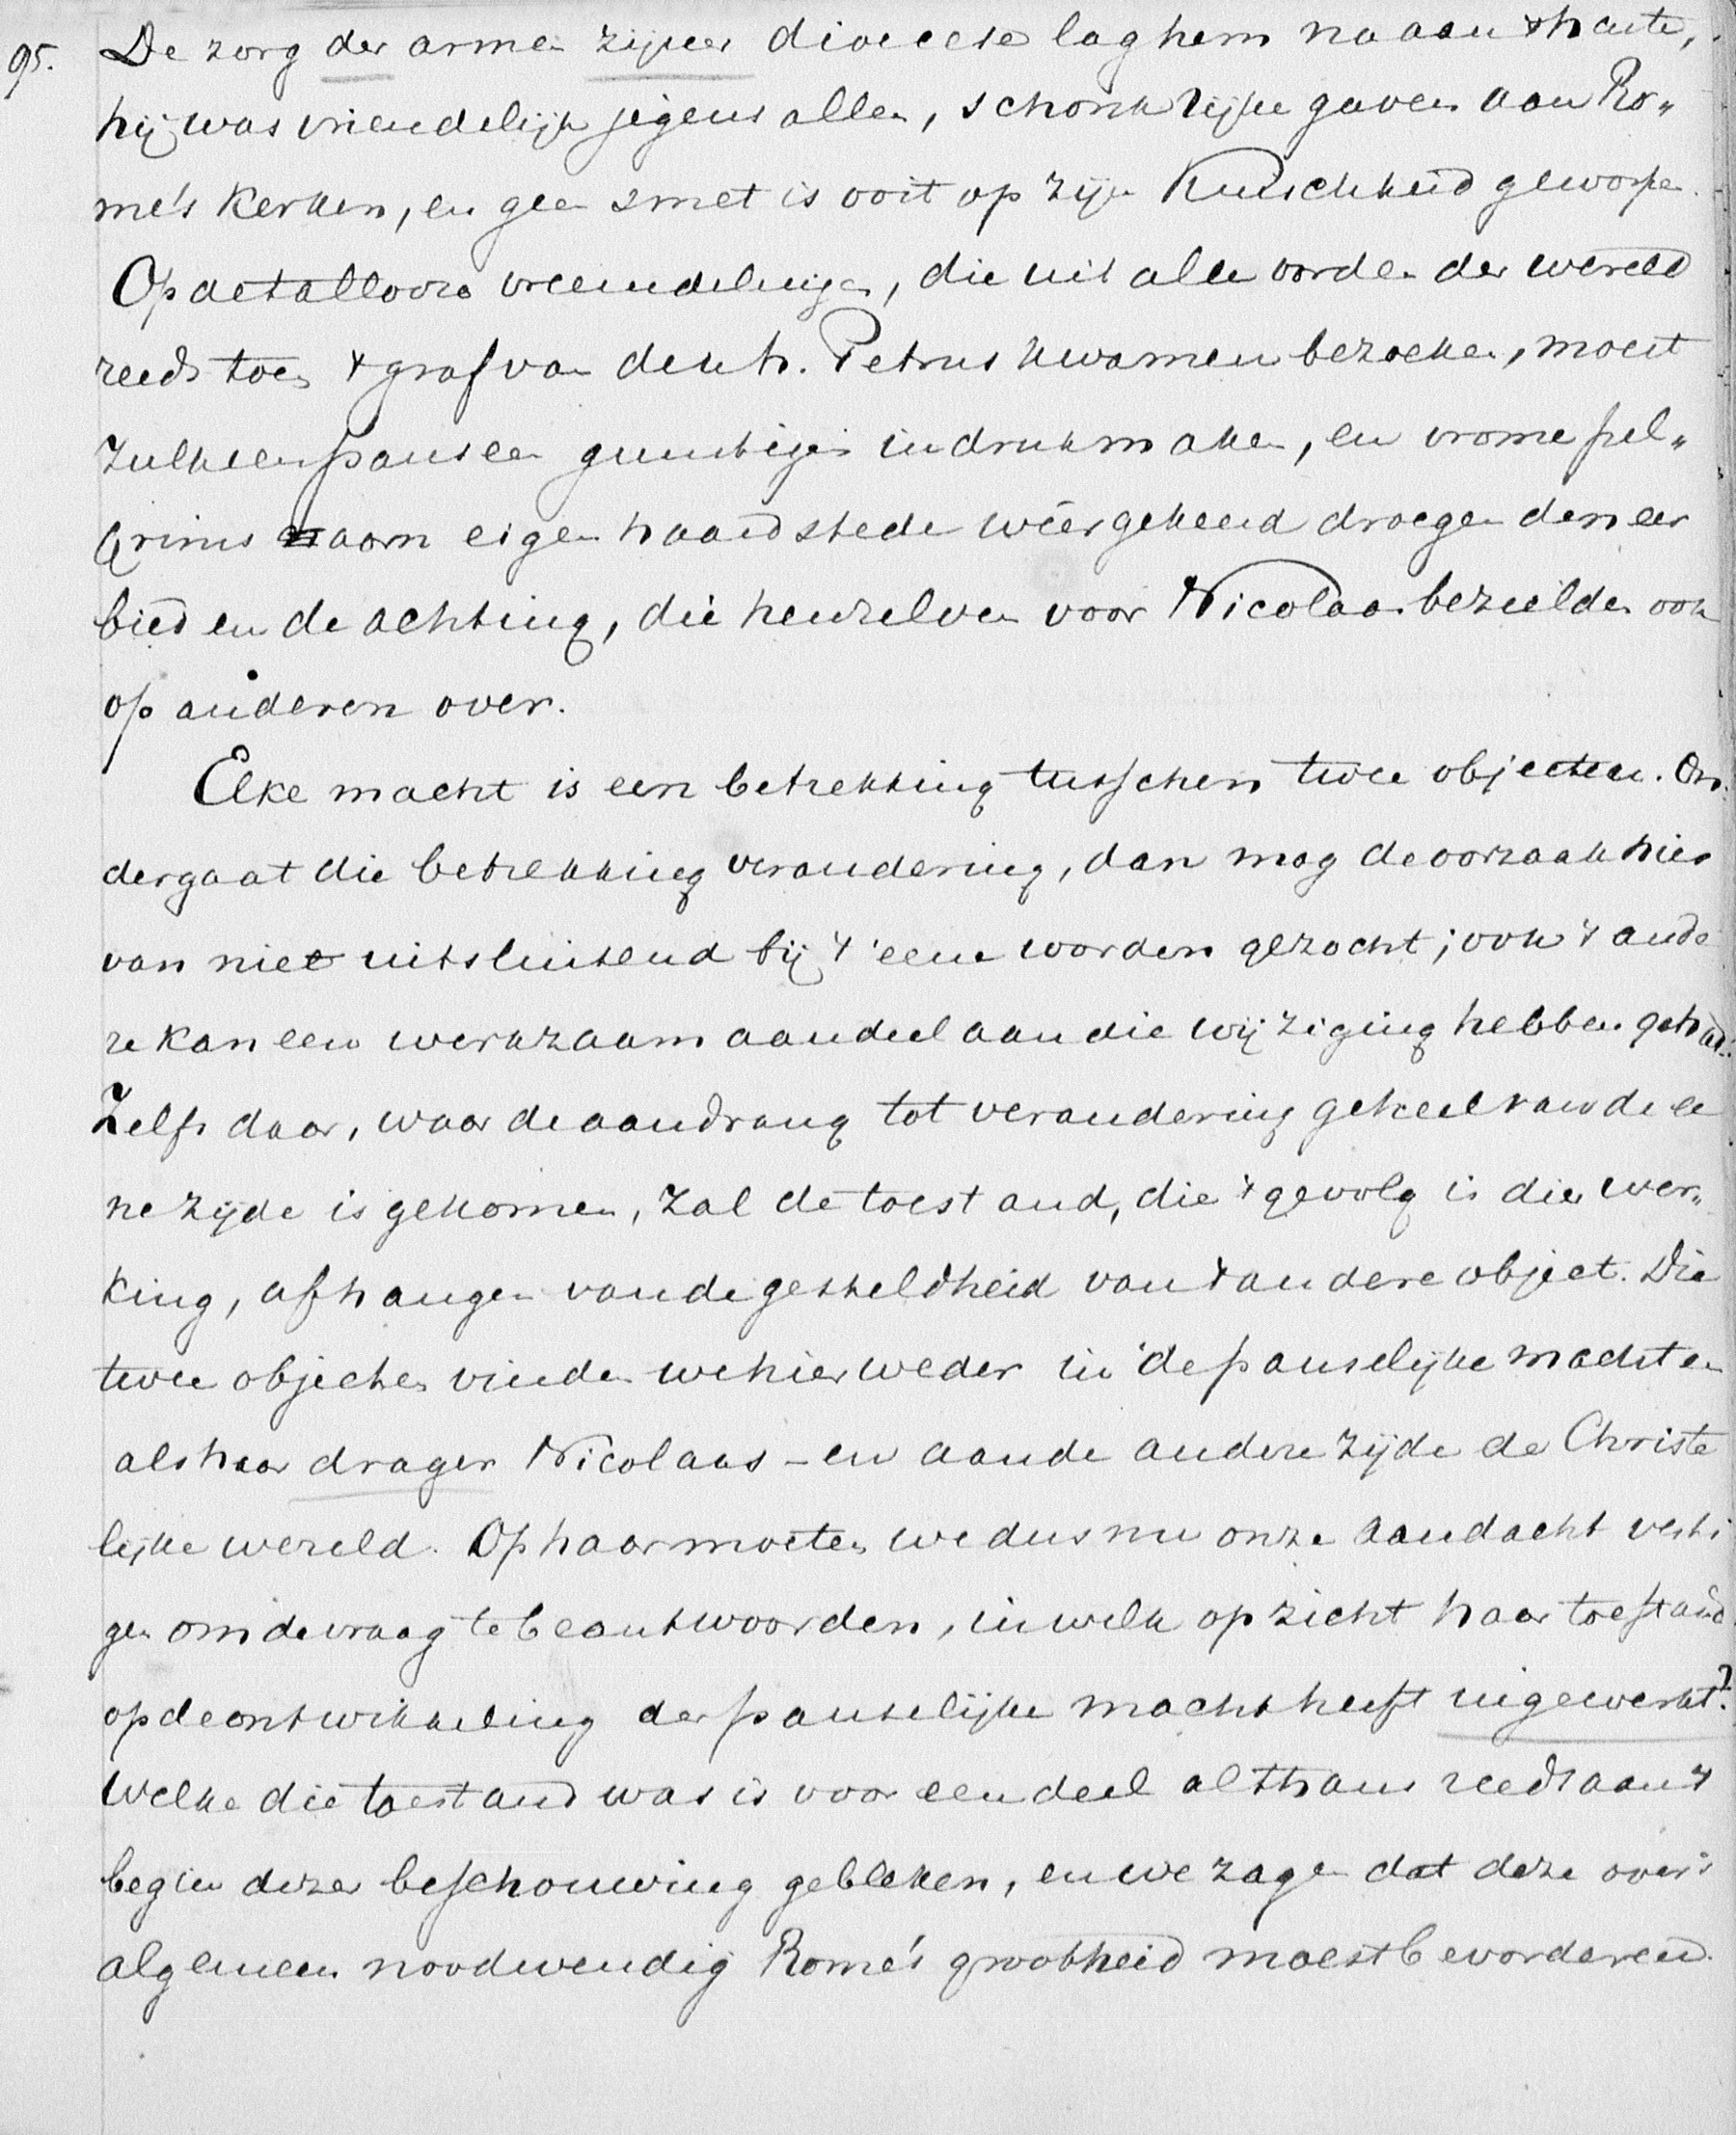 95. De zorg der armen zijner diocese lag hem na aan 't harte,
hij was vriendelijk jegens allen, schonk rijke gaven aan Ro„
me's kerken, en geen smet is ooit op zijn Kuischheid geworpen.
Op de tallooze vreemdelingen, die uit alle oorden der wereld
reeds toen 't graf van den h. Petrus kwamen bezoeken, moest
zulk een paus een gunstigen indruk maken, en vrome pel„
grims naar eigen haardstede wéérgekeerd droegen den eer
bied en de achting, die henzelven voor Nicolaas bezielden ook
op anderen over.
Elke macht is een betrekking tusschen twee objecten. On„
dergaat die betrekking verandering, dan mag de oorzaak hier
van niet uitsluitend bij 't eene worden gezocht; ook 't ande
re kan een werkzaam aandeel aan die wijziging hebben gehad.
Zelfs daar, waar de aandrang tot verandering geheel van de ee
ne zijde is gekomen, zal de toestand, die 't gevolg is dier wer„
king, afhangen van de gesteldheid van 't andere object. Die
twee objecten vinden we hier weder in de pauselijke macht en
als haar drager Nicolaas - en aan de andere zijde de Christe
lijke wereld. Op haar moeten we dus nu onze aandacht vesti
gen om de vraag te beantwoorden, in welk opzicht haar toestand
op de ontwikkeling der pauselijke macht heeft ingewerkt?
Welke die toestand was is voor een deel althans reeds aan 't
begin dezer beschouwing gebleken, en we zagen dat deze over 't
algemeen noodwendig Rome's grootheid moest bevorderen.